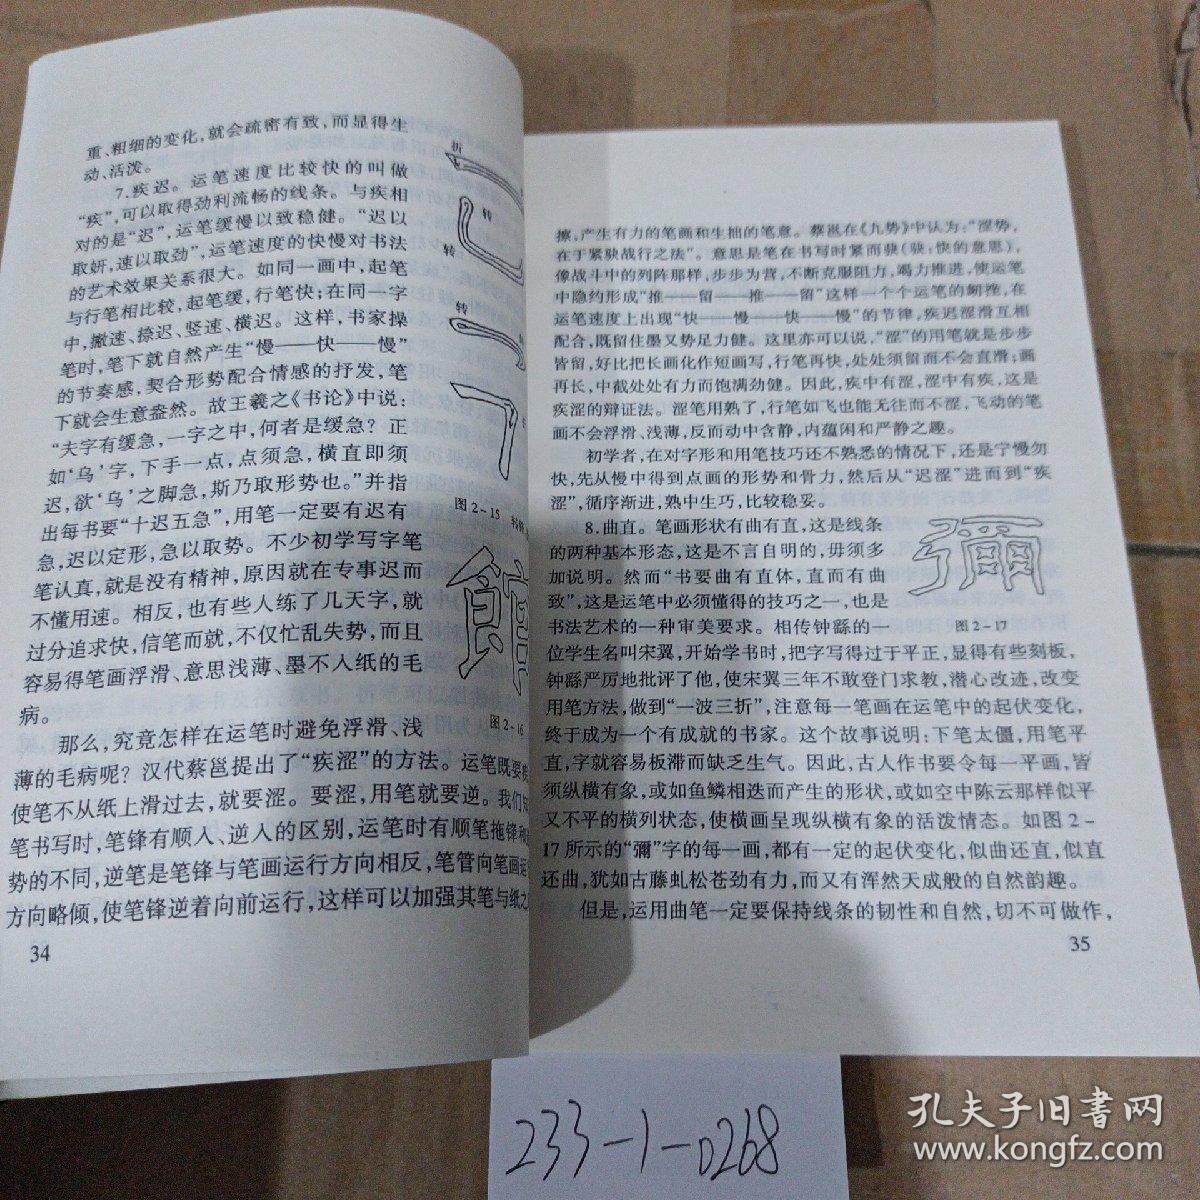 重、粗细的变化,就会疏密有致,而显得生
动、活泼。
7.疾迟。运笔速度比较快的叫做
“疾”,可以取得劲利流畅的线条。与疾相
对的是“迟”,运笔缓慢以致稳健。“迟以
取妍,速以取劲”,运笔速度的快慢对书法
的艺术效果关系很大。如同一画中,起笔
与行笔相比较,起笔缓,行笔快;在同一字
中,撇速、捺迟、竖速、横迟。这样,书家操
笔时,笔下就自然产生“慢——快——慢”
的节奏感,契合形势配合情感的抒发,笔
下就会生意盎然。故王羲之《书论》中说:
“夫字有缓急,一字之中,何者是缓急?正
如‘乌’字,下手一点,点须急,横直即须
迟,欲‘乌’之脚急,斯乃取形势也。”并指
出每书要“十迟五急”,用笔一定要有迟有
急,迟以定形,急以取势。不少初学写字笔
笔认真,就是没有精神,原因就在专事迟而
不懂用速。相反,也有些人练了几天字,就
过分追求快,信笔而就,不仅忙乱失势,而且
容易得笔画浮滑、意思浅薄、墨不入纸的毛
病。
那么,究竟怎样在运笔时避免浮滑、浅
薄的毛病呢?汉代蔡邕提出了“疾涩”的方法。运笔既要
使笔不从纸上滑过去,就要涩。要涩,用笔就要逆。我们
笔书写时,笔锋有顺入、逆入的区别,运笔时有顺笔拖锋和
势的不同,逆笔是笔锋与笔画运行方向相反,笔管向笔画运
方向略倾,使笔锋逆着向前运行,这样可以加强其笔与纸之
34
折
转
转
转
图 2-15
图 2-16
擦,产生有力的笔画和生拙的笔意。蔡邕在《九势》中认为:“涩势,
在于紧駃战行之法”。意思是笔在书写时紧而駃(駃:快的意思),
像战斗中的列阵那样,步步为营,不断克服阻力,竭力推进,使运笔
中隐约形成“推——留——推——留”这样一个个运笔的衄挫,在
运笔速度上出现“快——慢——快——慢”的节律,疾迟涩滑互相
配合,既留住墨又势足力健。这里亦可以说,“涩”的用笔就是步步
皆留,好比把长画化作短画写,行笔再快,处处须留而不会直滑;画
再长,中截处处有力而饱满劲健。因此,疾中有涩,涩中有疾,这是
疾涩的辩证法。涩笔用熟了,行笔如飞也能无往而不涩,飞动的笔
画不会浮滑、浅薄,反而动中含静,内蕴闲和严静之趣。
初学者,在对字形和用笔技巧还不熟悉的情况下,还是宁慢勿
快,先从慢中得到点画的形势和骨力,然后从“迟涩”进而到“疾
涩”,循序渐进,熟中生巧,比较稳妥。
8.曲直。笔画形状有曲有直,这是线条
的两种基本形态,这是不言自明的,毋须多
加说明。然而“书要曲有直体,直而有曲
致”,这是运笔中必须懂得的技巧之一,也是
书法艺术的一种审美要求。相传钟繇的一
位学生名叫宋翼,开始学书时,把字写得过于平正,显得有些刻板,
钟繇严厉地批评了他,使宋翼三年不敢登门求教,潜心改迹,改变
用笔方法,做到“一波三折”,注意每一笔画在运笔中的起伏变化,
终于成为一个有成就的书家。这个故事说明,下笔太僵,用笔平
直,字就容易板滞而缺乏生气。因此,古人作书要令每一平画,皆
须纵横有象,或如鱼鳞相迭而产生的形状,或如空中陈云那样似平
又不平的横列状态,使横画呈现纵横有象的活泼情态。如图 2-
17 所示的“彌”字的每一画,都有一定的起伏变化,似曲还直,似直
还曲,犹如古藤虬松苍劲有力,而又有浑然天成般的自然韵趣。
但是,运用曲笔一定要保持线条的韧性和自然,切不可做作,
彌
图 2-17
35
233-1-0268
孔夫子旧书网
www.kongfz.com